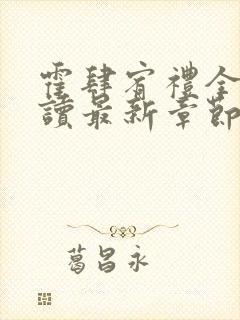 霍肆宥禮全
讀最新章節
葛昌永